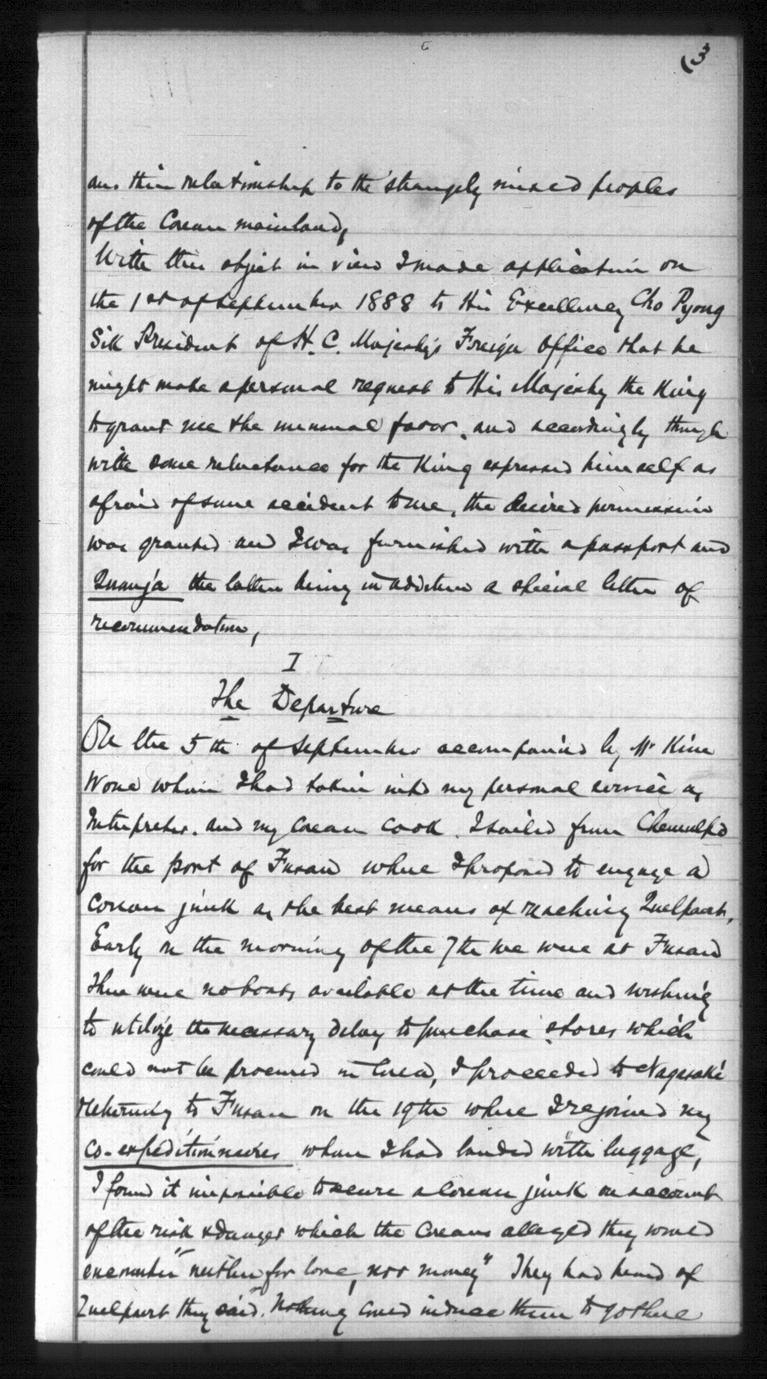 (3
and their relationship to the strangely mixed peoples
of the Corean mainland,
With this object in view I made application on
the 1st of September 1888 to His Excellency Cho Pyong
Sik President of H. C. Majesty's Foreign Office that he
might make a personal request to His Majesty the King
to grant me the unusual favor. and accordingly though
with some reluctance for the King expressed himself as
afraid of some accident to me, the desired permission
was granted and I was furnished with a passport and
Quanja the latter being in addition a special letter of
recommendation,
I
The Departure
On the 5th of September accompanied by Mr Kim
Wone whom I had taken into my personal service as
Interpreter. and my Corean cook. I sailed from Chemulpo
for the port of Fusan where I proposed to engage a
Corean junk as the best means of reaching Quelpart,
Early on the morning of the 7th we were at Fusan
There were no boats available at the time and wishing
to utilize the necessary delay to purchase stores which
could not be procured in Corea, I proceeded to Nagasaki
returning to Fusan on the 19th where I rejoined my
co-expeditionaries whom I had landed with luggage,
I found it impossible to secure a Corean junk on account
of the risk & danger which the Coreans alleged they would
encounter "neither for love, nor money" They had heard of
Quelpart they said. Nothing could induce them to go there